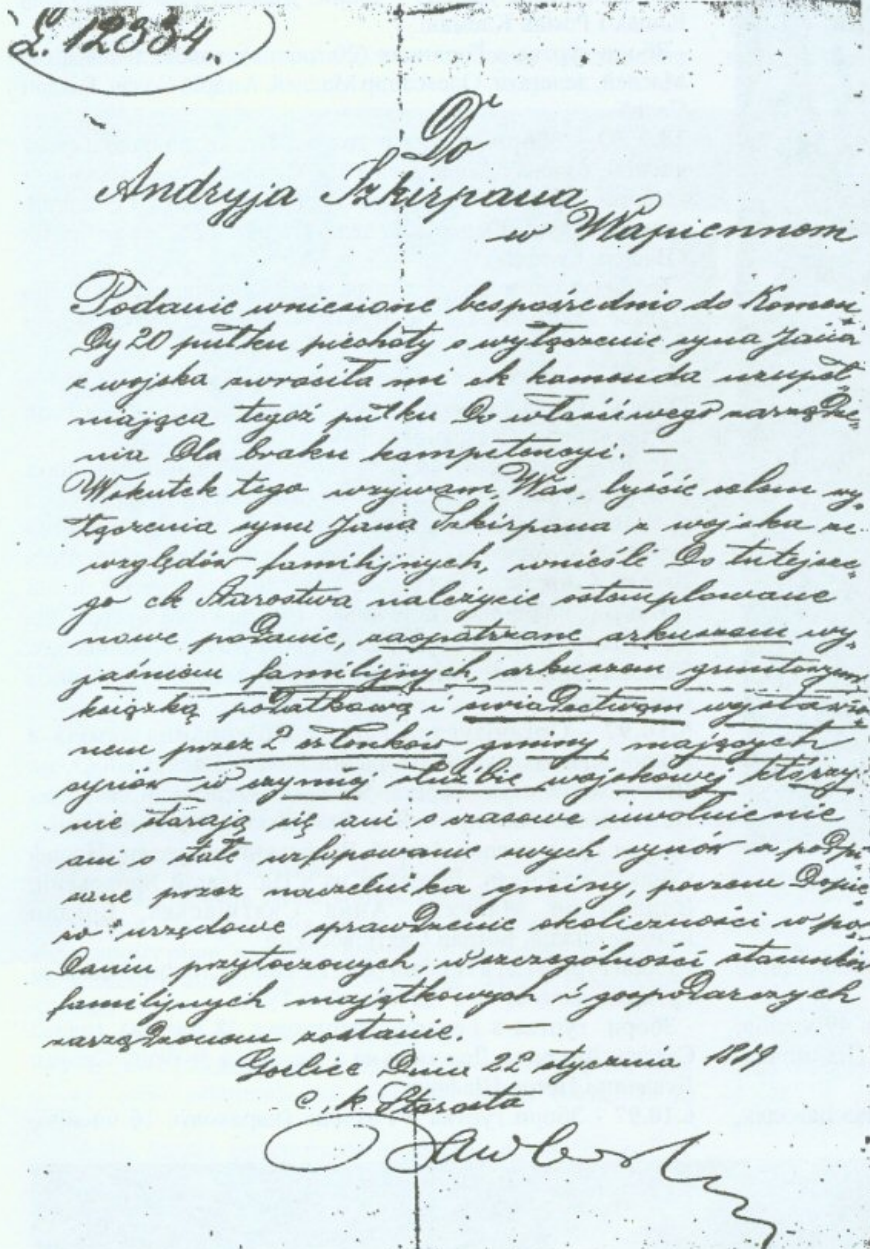 L. 12334.
Do
Andryja Szkirpana
w Wapiennem
Podanie wniesione bespośredmo do Komen
dy 20 pułku piechoty o wyłączenie syna Jana
z wojska zwróciła mi ck komenda uzupeł
niająca tegoż pułku do właściwego zarządze-
nia dla braku kompetencyi. —
Wskutek tego wzywam Was, byście celem wy
łączenia syna Jana Szkirpana z wojska ze
względów familijnych, wnieśli do tutejsze-
go ck Starostwa należycie ostemplowane
nowe podanie, zaopatrzone arkuszem wy-
jaśnień familijnych, arkuszem gruntowym
książką podatkową i świadectwem wystawio
nem przez 2 członków gminy, mających
synów w czynnej służbie wojskowej którzy
nie starają się ani o czasowe uwolnienie
ani o stałe urlopowanie swych synów a podpi
sane przez naczelnika gminy, poczem dopie
ro urzędowe sprawdzenie okoliczności w po
daniu przytoczonych, w szczególności stosunków
familijnych majątkowych i gospodarczych
zarządzonem zostanie. —
Gorlice dnia 22 stycznia
c. k Starosta